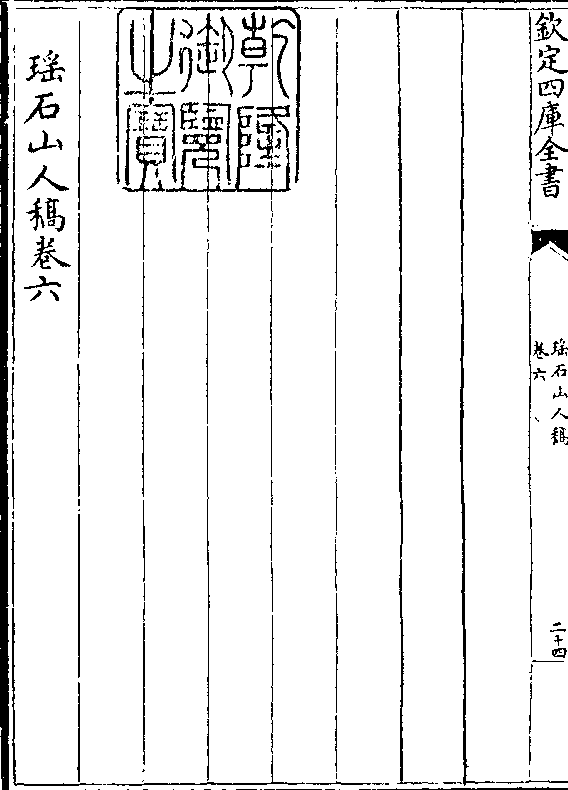 欽定四庫全書
瑤石山人稿
卷六
二十四
乾隆
御覽
之寶
瑤石山人稿卷六